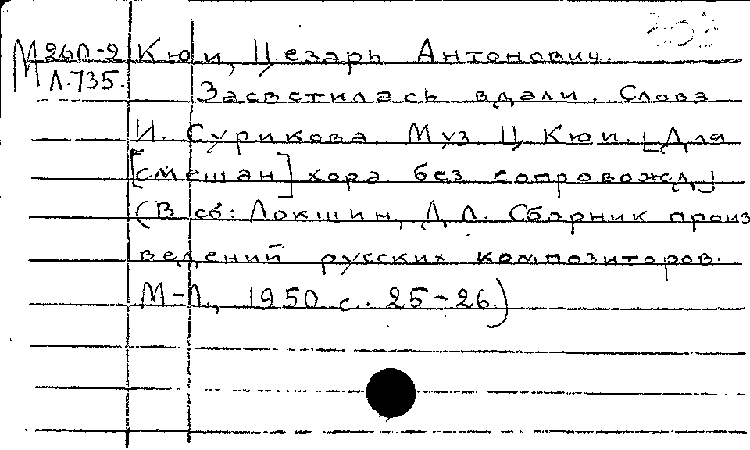 М260-2 Кюи, Цезарь Антонович.
М Л.735. Засветилась вдали. Слова
И. Сурикова. Муз Ц Кюи. [Для
[смешан] хора без сопровожд]
(В сб: Локшин, Д Л. Сборник произ
ведений русских композиторов.
М-Л., 1950 с. 25-26.)